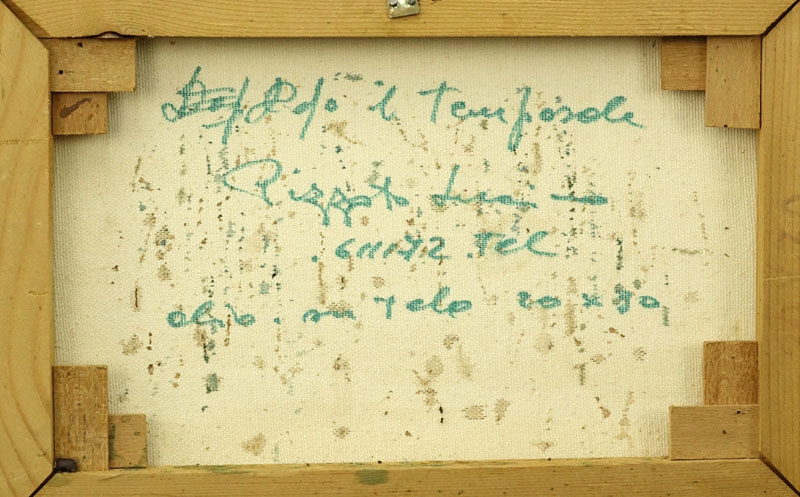 Dopo il Temporale
Pizzato Luciano
. 611172 . Tel
olio . su Tela 20 x 30